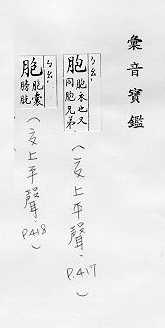 彙音寶鑑
ㄅㄠ
胞 胞衣也又
同胞兄弟
(交上平聲.
P.417)
ㄆㄠ
脬 胞囊
膀胱
(交上平聲.
P.418)